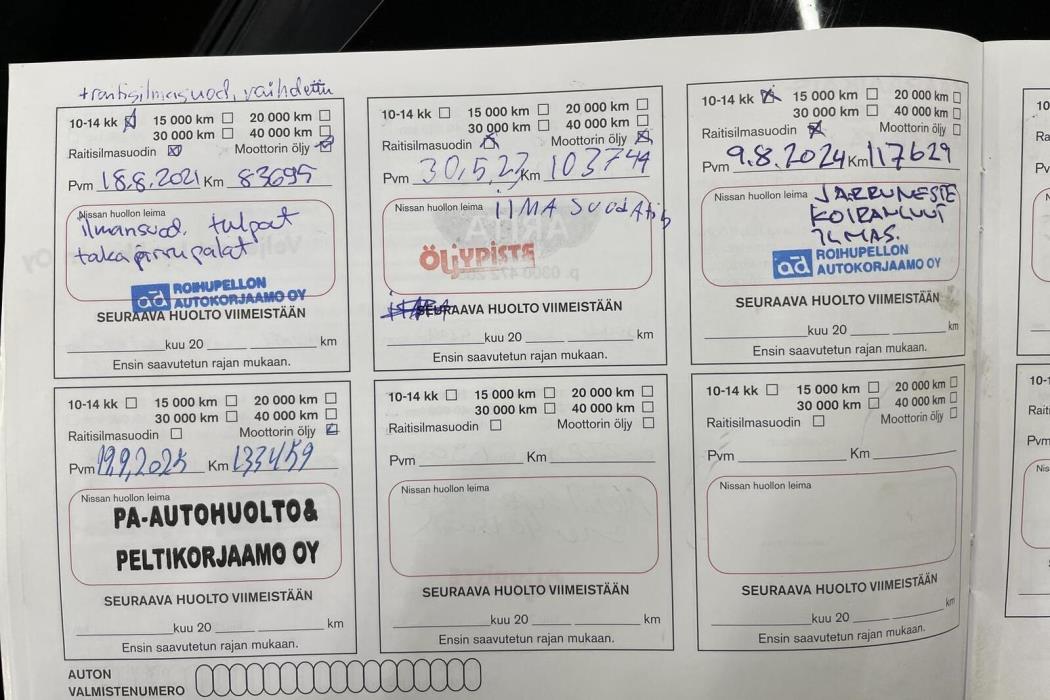 +raitisilmasuod, vaihdettu
10-14 kk 15 000 km 20 000 km
30 000 km 40 000 km
Raitisilmasuodin Moottorin öljy
Pvm 18.8.2021 Km 83695
Nissan huollon leima
ilmansuod. tulpat
taka jarrupalat
ad ROIHUPELLON
AUTOKORJAAMO OY
SEURAAVA HUOLTO VIIMEISTÄÄN
kuu 20 km
Ensin saavutetun rajan mukaan.
10-14 kk 15 000 km 20 000 km
30 000 km 40 000 km
Raitisilmasuodin Moottorin öljy
Pvm 30.5.23 Km 103744
Nissan huollon leima
IIMA
ÖLJYPISTE
SEURAAVA HUOLTO VIIMEISTÄÄN
kuu 20 km
Ensin saavutetun rajan mukaan.
10-14 kk 15 000 km 20 000 km
30 000 km 40 000 km
Raitisilmasuodin Moottorin öljy
Pvm 9.8.2024 Km 117629
Nissan huollon leima
JARRUNESTE
KOIRANLUUT
ILMAS.
ad ROIHUPELLON
AUTOKORJAAMO OY
SEURAAVA HUOLTO VIIMEISTÄÄN
kuu 20 km
Ensin saavutetun rajan mukaan.
10-14 kk 15 000 km 20 000 km
30 000 km 40 000 km
Raitisilmasuodin Moottorin öljy
Pvm 19.9.2025 Km 133459
Nissan huollon leima
PA-AUTOHUOLTO&
PELTIKORJAAMO OY
SEURAAVA HUOLTO VIIMEISTÄÄN
kuu 20 km
Ensin saavutetun rajan mukaan.
10-14 kk 15 000 km 20 000 km
30 000 km 40 000 km
Raitisilmasuodin Moottorin öljy
Pvm Km
Nissan huollon leima
SEURAAVA HUOLTO VIIMEISTÄÄN
kuu 20 km
Ensin saavutetun rajan mukaan.
10-14 kk 15 000 km 20 000 km
30 000 km 40 000 km
Raitisilmasuodin Moottorin öljy
Pvm Km
Nissan huollon leima
SEURAAVA HUOLTO VIIMEISTÄÄN
kuu 20 km
Ensin saavutetun rajan mukaan.
AUTON
VALMISTENUMERO